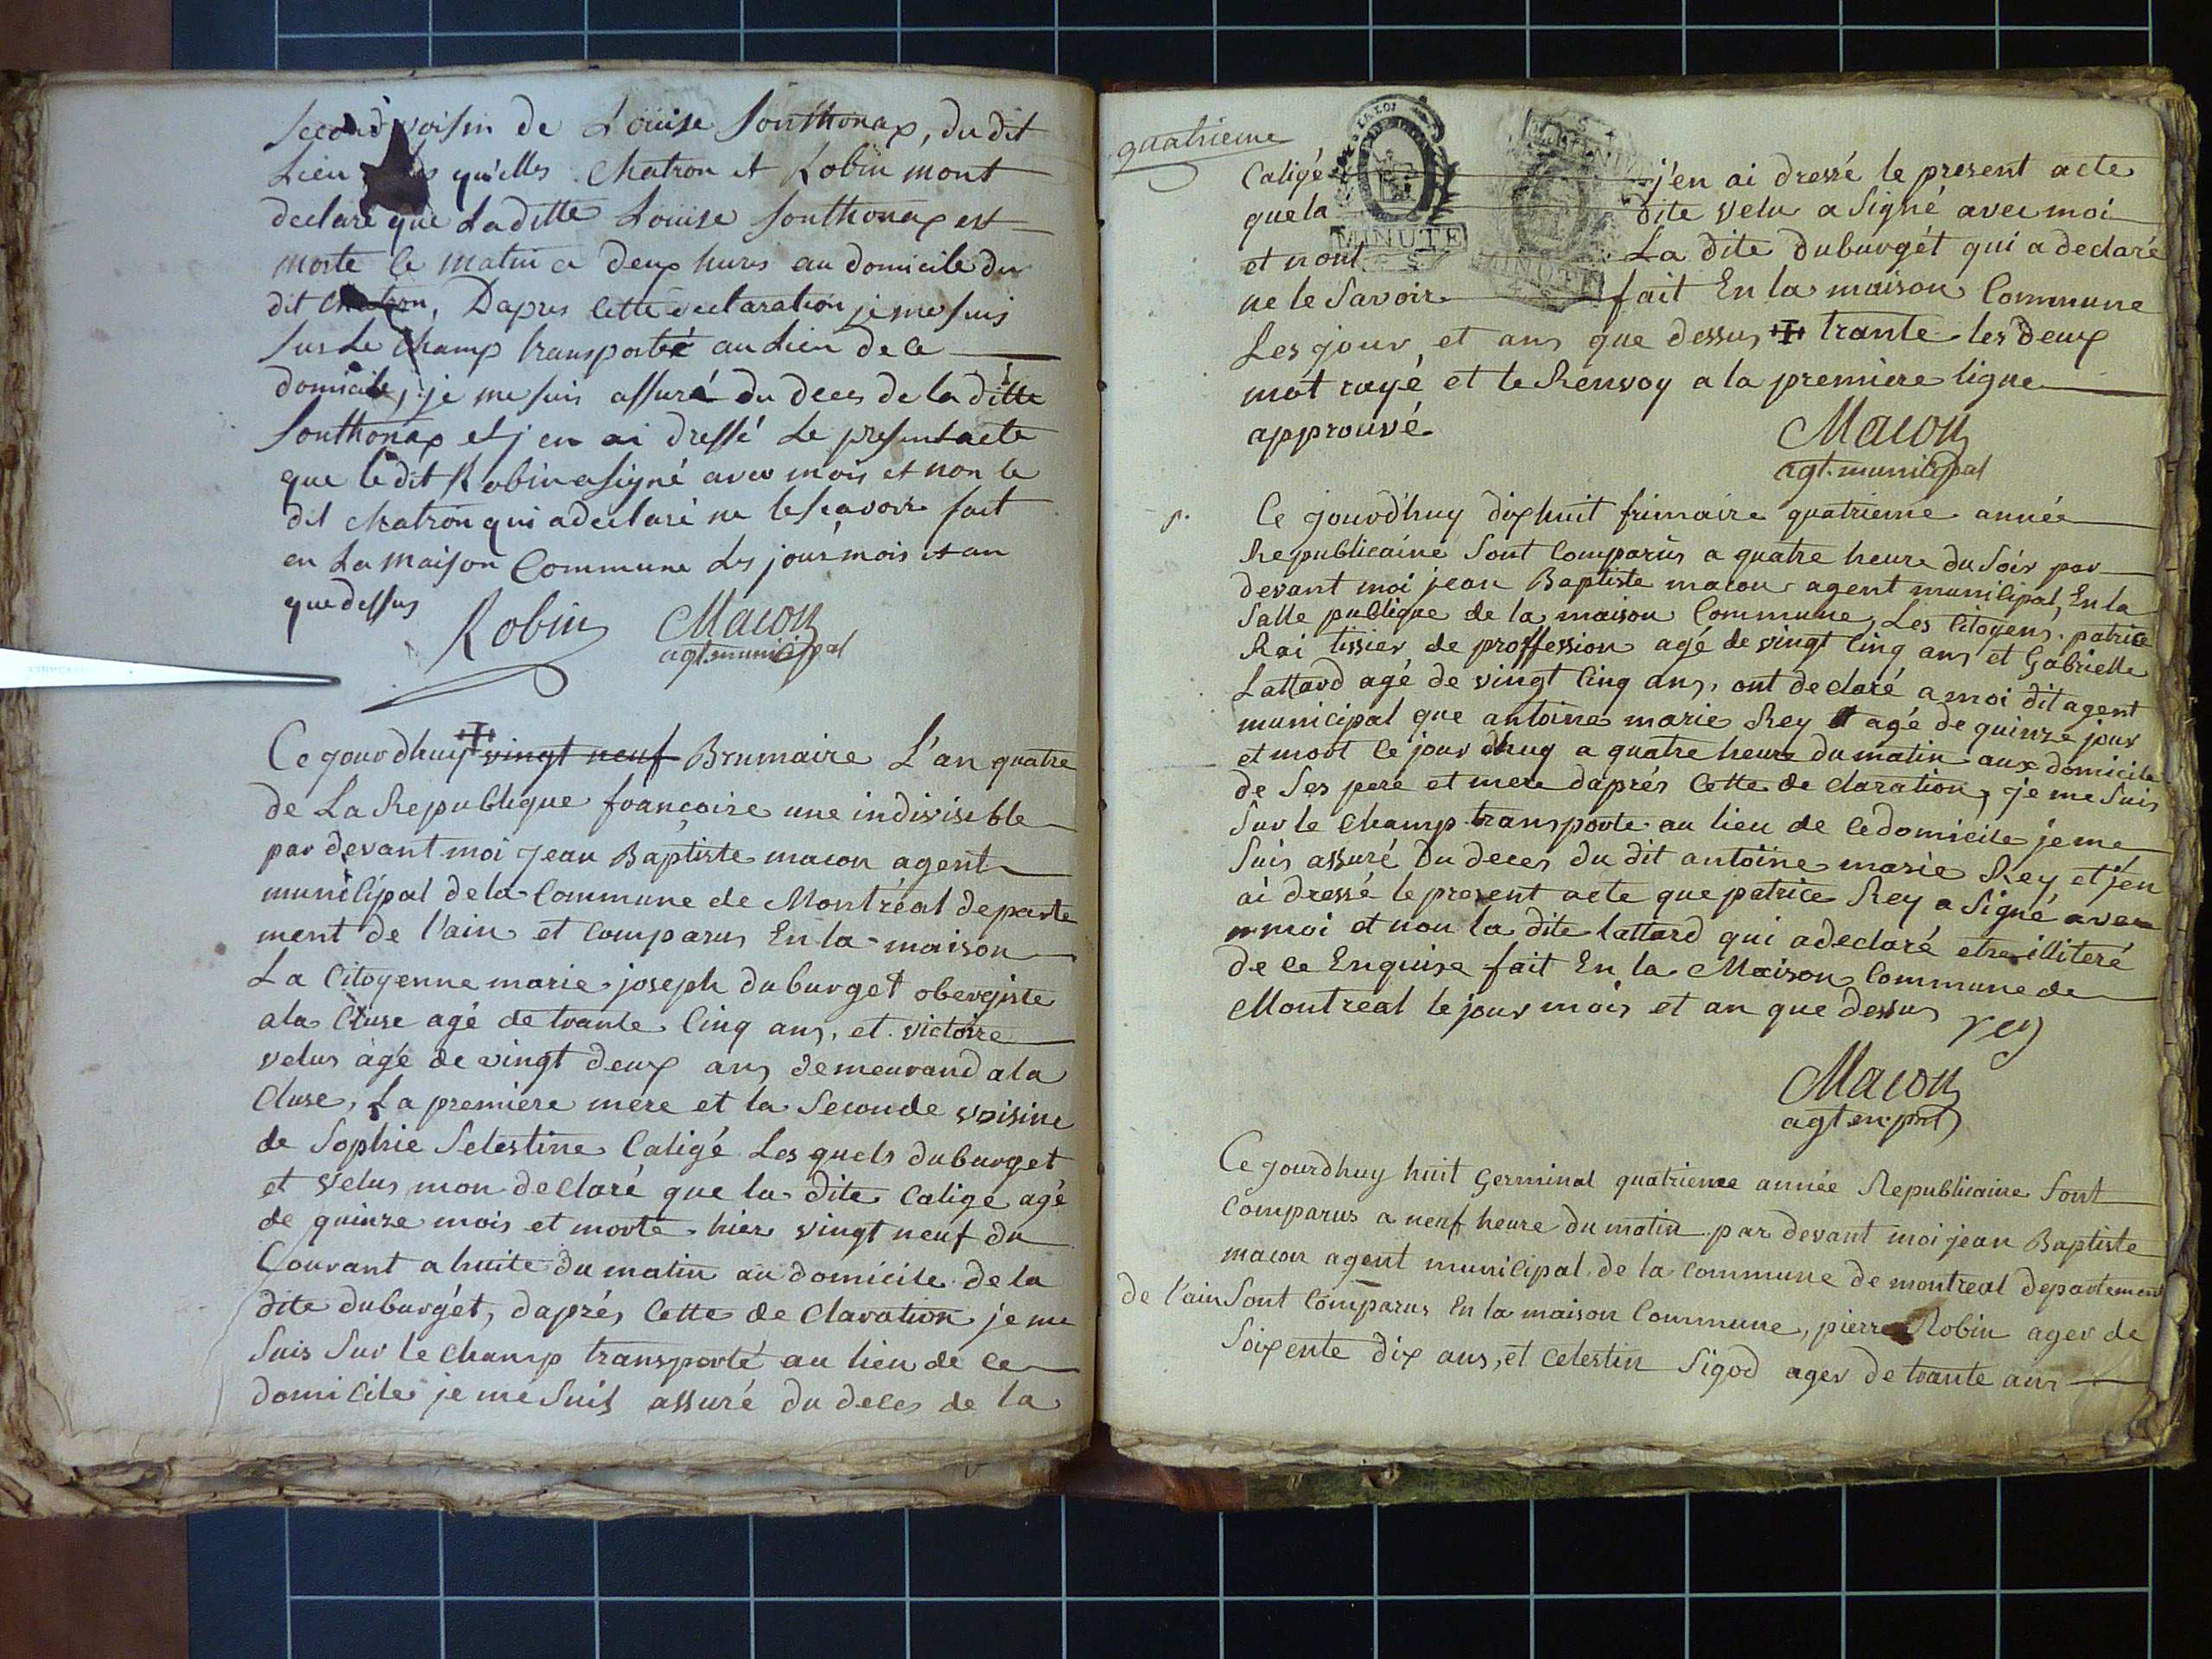 second voisin de Louise Sonthonax, du dit
Lieu qu'elles Chatron et Robin m'ont
declaré que Laditte Louise Sonthonax est
morte ce matin a deux hures au domicile du
dit Chatron, Dapres cette declaration je me suis
sur Le champ transporté au Lieu de ce
domicile, je me suis assuré du deces de la ditte
Sonthonax et j'en ai dressé Le present acte
que ledit Robin a signé avec mois et non le
dit chatron qui a declaré ne le sçavoir fait
en La maison Commune Les jour mois et an
que dessus
Robin Macon
agt. municipal
Ce jourdhuy ☩ vingt neuf Brumaire L'an quatre
de La Republique françoise une indivisible
par devant moi Jean Baptiste macon agent
municipal de la Commune de Montréal departe
ment de l'ain et comparus En la maison
La Citoyenne marie joseph duburget obergiste
a la Cluse agé de trante cinq ans, et victoire
velus agé de vingt deux ans demeurand a la
Cluse, La premiere mere et la Seconde voisine
de Sophie Selestine Caligé Les quels duburget
et velus mon declaré que la dite Caligé agé
de quinze mois et morte hier vingt neuf du
Courant a huite du matin au domicile de la
dite duburgét, daprés Cette de Claration je me
Suis Sur le Champ transporté au lieu de ce
domicile je me Suis assuré du deces de la
quatrieme
LA LOI
MINUTE
MINUTE
Caligé j'en ai dressé le present acte
que la dite velu a Signé avec moi
et non La dite duburgét qui a declaré
ne le Savoir fait En la maison Commune
Les jour et ans que dessus ☩ trante les deux
mot rayé et le Renvoy a la premiere ligne
approuvé
Macon
agt. municipal
p. Ce jourdhuy dixhuit frimaire quatrieme année
Republicaine Sont Comparûs a quatre heure du Soir par
devant moi jean Baptiste macon agent municipal, En la
Salle publique de la maison Commune, Les Citoyens patrice
Rai tissier de proffession agé de vingt Cinq ans et Gabrielle
Lattard agé de vingt Cinq ans, ont declaré a moi dit agent
municipal que antoine marie Rey agé de quinze jour
et mort ce jour dhuy a quatre heure du matin aux domicile
de Ses pere et mere daprés Cette de claration, je me Suis
Sur le Champ transporte au lieu de ce domicile je me
Suis assuré du deces du dit antoine marie Rey et j'en
ai dressé le present acte que patrice Rey a Signé avec
moi et non la dite lattard qui a declaré etre illiteré
de ce Enquise fait En la Maison Commune de
Montreal le jour mois et an que dessus
rey
Macon
agt
Ce jourdhuy huit Germinal quatrieme année Republicaine Sont
Comparus a neuf heure du matin par devant moi jean Baptiste
macon agent municipal de la Commune de montreal departement
de l'ain Sont Comparus En la maison Commune, pierre Robin ager de
Soixente dix ans, et Celestin Sigod ager de trante ans